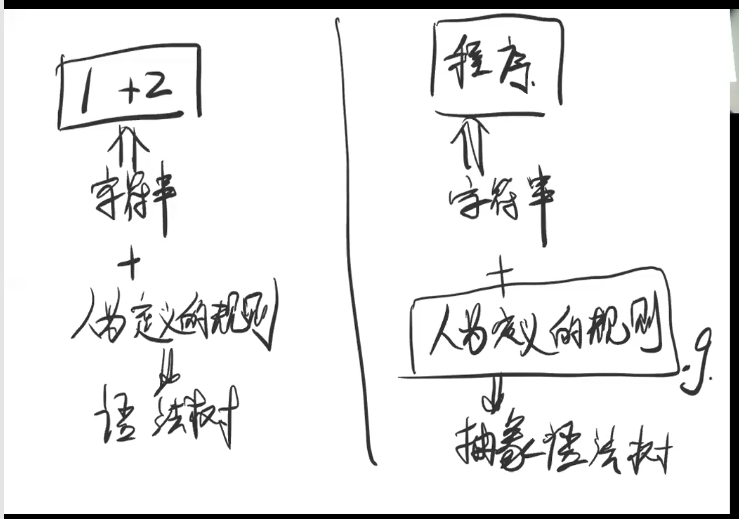 1 + 2
字符串
+
人为定义的规则
语法树
程序
字符串
+
人为定义的规则
.g.
抽象语法树